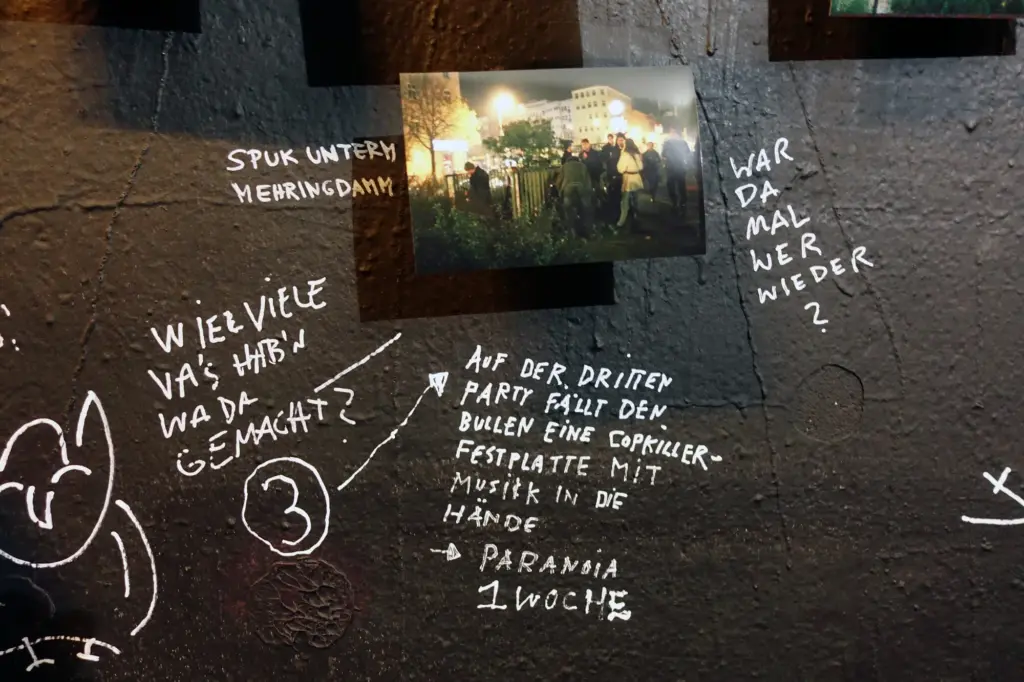 SPUK UNTERM
MEHRINGDAMM
WAR
DA
MAL
WER
WIEDER
?
WIEVIELE
VA'S HAB'N
WA DA
GEMACHT?
3
AUF DER DRITTEN
PARTY FÄLLT DEN
BULLEN EINE COPKILLER-
FESTPLATTE MIT
MUSIK IN DIE
HÄNDE
→ PARANOIA
1 WOCHE